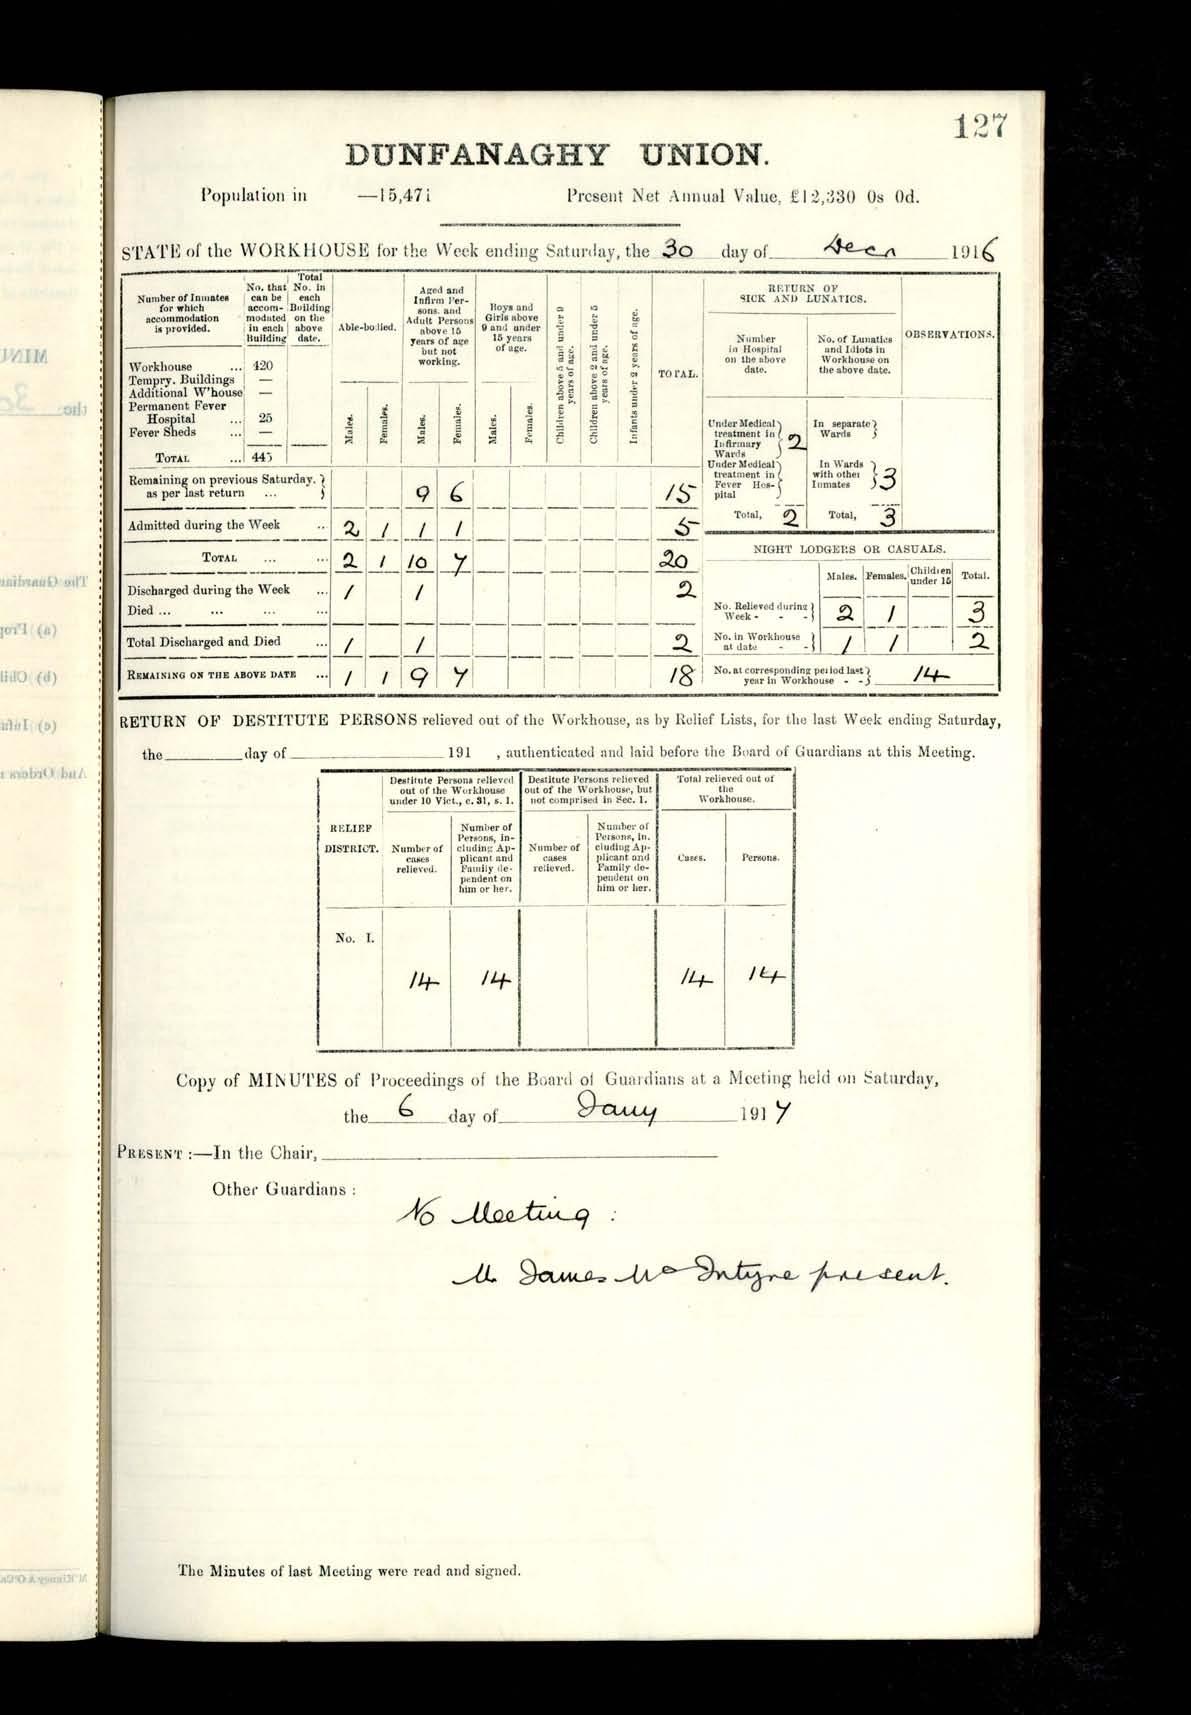 127
DUNFANAGHY UNION.
Population in —15,471 Present Net Annual Value, £12,330 0s 0d.
STATE of the WORKHOUSE for the Week ending Saturday, the 30 day of Decr 1916
Number of Inmates for which accommodation is provided.
No. that can be accommodated in each Building
Total No. in each Building on the above date.
Able-bodied.
Aged and Infirm Persons, and Adult Persons above 15 years of age but not working.
Boys and Girls above 9 and under 15 years of age.
Children above 5 and under 9 years of age.
Children above 2 and under 5 years of age.
Infants under 2 years of age.
TOTAL.
RETURN OF SICK AND LUNATICS.
Number in Hospital on the above date.
No. of Lunatics and Idiots in Workhouse on the above date.
OBSERVATIONS.
Males. Females. Males. Females. Males. Females.
Workhouse ... 420
Tempry. Buildings —
Additional W'house —
Permanent Fever
Hospital ... 25
Fever Sheds ... —
TOTAL ... 445
Remaining on previous Saturday, as per last return ... 9 6 15
Admitted during the Week .. 2 1 1 1 5
TOTAL ... ... 2 1 10 7 20
Discharged during the Week ... 1 1 2
Died ... ... ... ...
Total Discharged and Died ... 1 1 2
REMAINING ON THE ABOVE DATE ... 1 1 9 7 18
Under Medical treatment in Infirmary Wards 2
Under Medical treatment in Fever Hospital
Total, 2
In separate Wards
In Wards with other Inmates 3
Total, 3
NIGHT LODGERS OR CASUALS.
Males. Females. Children under 15 Total.
No. Relieved during Week - - - 2 1 3
No. in Workhouse at date - - 1 1 2
No. at corresponding period last year in Workhouse - - 14
RETURN OF DESTITUTE PERSONS relieved out of the Workhouse, as by Relief Lists, for the last Week ending Saturday,
the day of 191 , authenticated and laid before the Board of Guardians at this Meeting.
RELIEF DISTRICT.
Destitute Persons relieved out of the Workhouse under 10 Vict., c. 31, s. 1.
Destitute Persons relieved out of the Workhouse, but not comprised in Sec. 1.
Total relieved out of the Workhouse.
Number of cases relieved.
Number of Persons, including Applicant and Family dependent on him or her.
Number of cases relieved.
Number of Persons, in. cluding Applicant and Family dependent on him or her.
Cases.
Persons.
No. I.
14 14 14 14
Copy of MINUTES of Proceedings of the Board of Guardians at a Meeting held on Saturday,
the 6 day of Jany 1917
PRESENT :—In the Chair,
Other Guardians :
No Meeting :
Mr James McIntyre present.
The Minutes of last Meeting were read and signed.